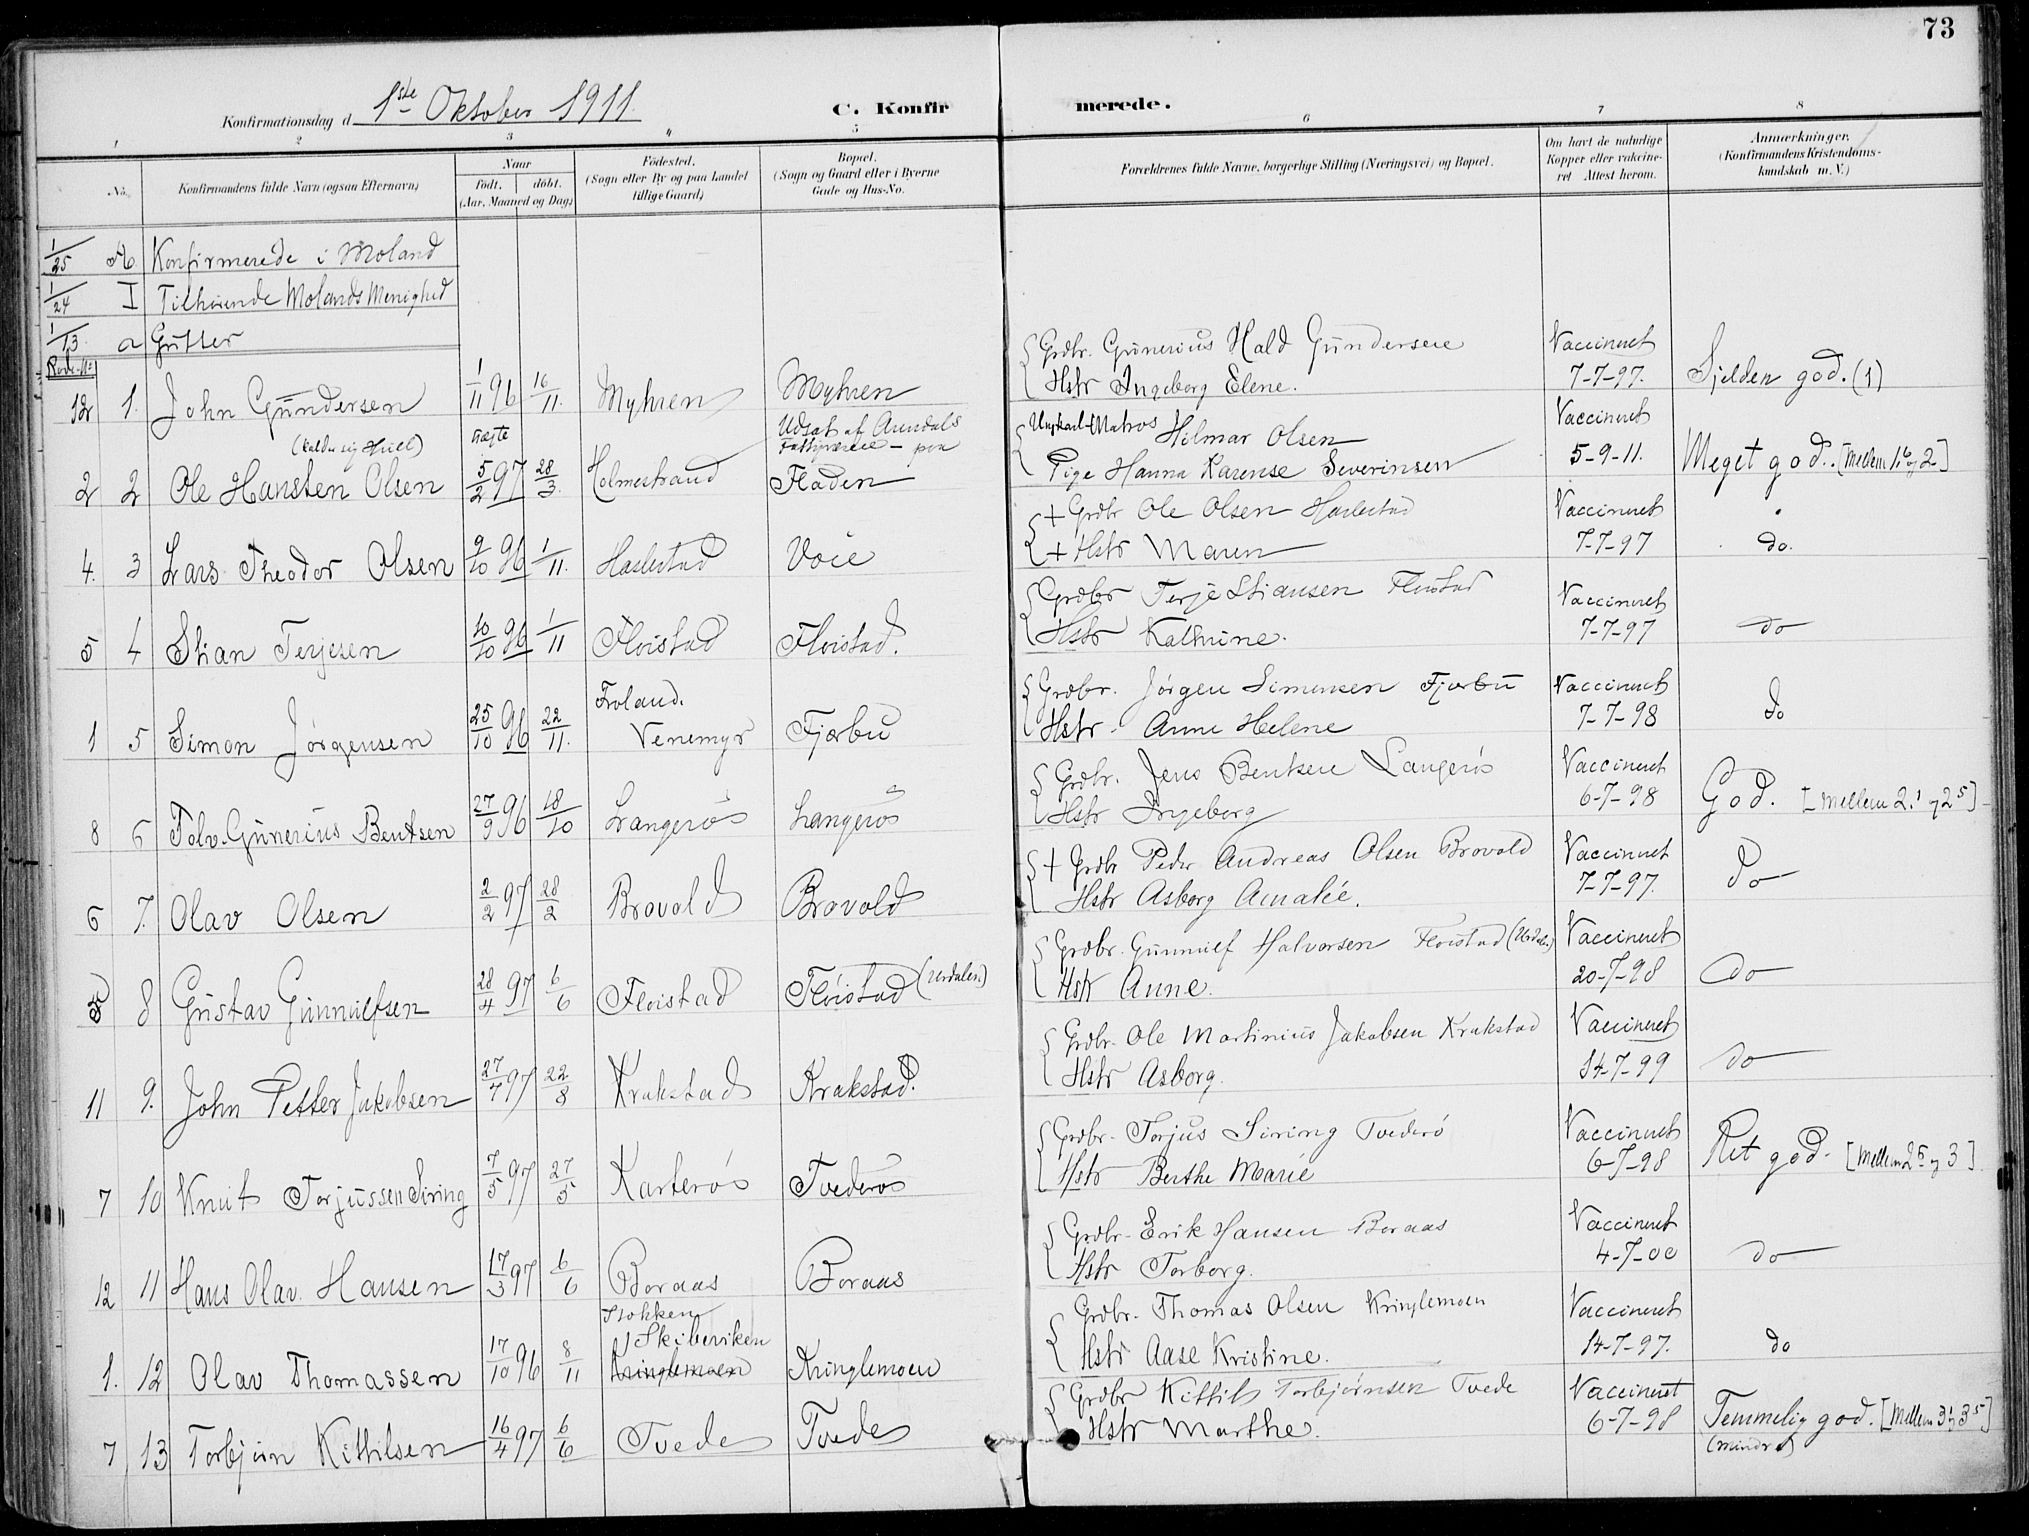 73
Konfirmationsdag d 1ste Oktober 1911.
C. Konfirmerede.
1 2 3 4 5 6 7 8
No. Konfirmandens fulde Navn (ogsaa Efternavn) Naar født. døbt. (Aar, Maaned og Dag) Fødested. (Sogn eller By og paa Landet tillige Gaard) Bopæl. (Sogn og Gaard eller i Byerne Gade og Hus-No. Forældrenes fulde Navne, borgerlige Stilling (Næringsvei) og Bopæl. Om havt de naturlige Kopper eller vaccineret Attest herom. Anmærkninger. (Konfirmandens Kristendomskundskab m. V.)
1/25 A. Konfirmerede i Moland
1/24 I Tilhørende Molands Menighed
1/13. a Gutter
Rode-No:
12 1. John Gundersen 1/11 96 16/11. Myhren Myhren { Grdbr. Gunerius Hald Gundersen Hstr Ingeborg Elene. Vaccineret 7-7-97. Sjelden god. (1)
(kalder sig Hiel) uægte Udsat af Arendals Fattigvæsen – paa
2 2 Ole Hansten Olsen 5/2 97 28/3. Holmestrand Fladen { Ungkarl Matros Hilmar Olsen Pige Hanna Karense Severinsen Vaccineret 5-9-11. Meget god. [Mellem 1.6 og 2]
4. 3 Lars Theodor Olsen 9/10 96 1/11. Haslestad Voie { + Grdbr Ole Olsen Haslestad + Hstr Maren Vaccineret 7-7-97 do.
5 4 Stian Terjesen 10/10 96 1/11 Fløistad Fløistad. { Grdbr Terje Stiansen Fløistad Hstr Kathrine. Vaccineret 7-7-97 do
1 5 Simon Jørgensen 25/10 96 22/11. Froland. Venemyr Fjærbu { Grdbr. Jørgen Simonsen Fjærbu Hstr. Anne Helene Vaccineret 7-7-98 do
8 6 Tolv. Gunerius Bentsen 27/9 96 18/10 Langerøs Langerøs { Grdbr. Jens Bentsen Langerøs Hstr Ingeborg Vaccineret 6-7-98 God. [Mellem 2.1 og 2 5]
6 7. Olav Olsen 2/2 97 28/2 Brovold Brovold { + Grdbr Peder Andreas Olsen Brovold Hstr Asborg Amalie. Vaccineret 7-7-97. do
5 8 Gustav Gunnulfsen 28/4 97 6/6 Fløistad Fløistad (Urdalen) { Grdbr. Gunnulf Halvorsen Fløistad (Urdalen) Hstr Anne. Vaccineret 20-7-98 do
11 9. John Petter Jakobsen 27/7 97 22/8 Krakstad Krakstad. { Grdbr. Ole Martinius Jakobsen Krakstad Hstr Asborg. Vaccineret 14-7-99 do
7 10 Knut Torjussen Siring 7/5 97 27/5 Karterøs Tvederøs { Grdbr. Torjus Siring Tvederø Hstr Berthe Marie Vaccineret 6-7-98 Ret god. [Mellem 2 6 og 3]
12 11 Hans Olav Hansen 17/3 97 6/6 Boraas Boraas { Grdbr. Erik Hansen Boraas Hstr Torborg. Vaccineret 4-7-00 do
1. 12 Olav Thomassen 17/10 96 8/11 Stokken Skibeviken Kringlemoen Kringlemoen { Grdbr. Thomas Olsen Kringlemoen Hstr Aase Kristine. Vaccineret 14-7-97. do
7 13 Torbjørn Kittilsen 16/4 97 6/6 Tvede Tvede { Grdbr Kittil Torbjørnsen Tvede Hstr Marthe. Vaccineret 6-7-98 Temmelig god. [Mellem 3 1 og 3 5]
(mindre)